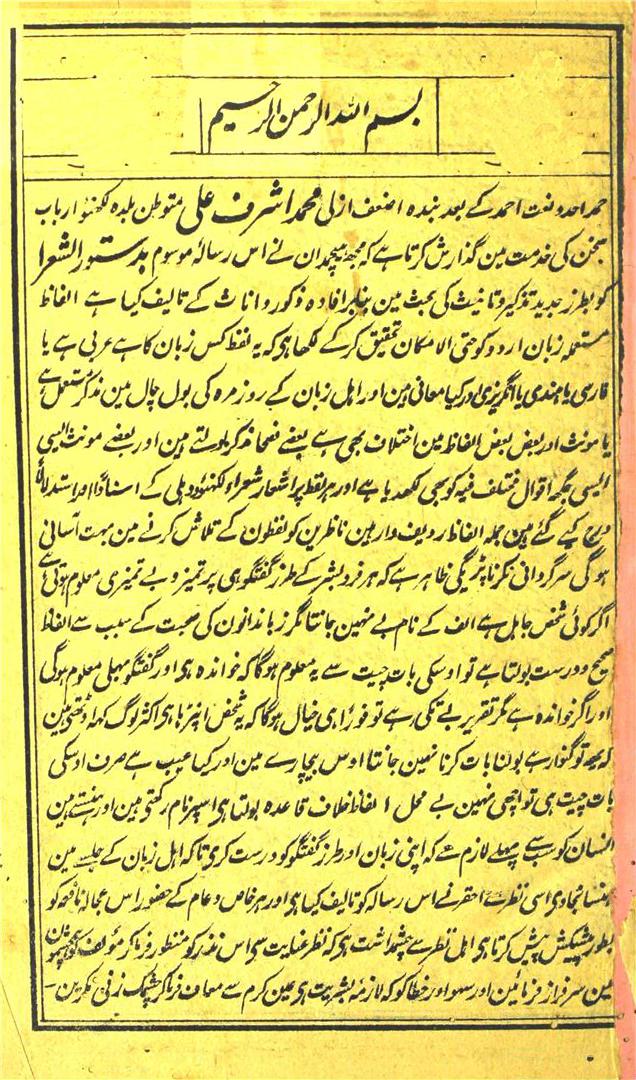 بسم اللہ الرحمن الرحیم
حمد احد و نعت احمد کے بعد بندہ اضعف ازلی محمد اشرف علی متوطن بلدہ لکھنؤ ارباب
سخن کی خدمت مین گذارش کرتا ہے کہ مجھ ہیچمدان نے اس رسالہ موسوم بدستور الشعرا
کو بطرز جدید تذکیر و تانیث کی بحث مین بنابر افادہ ذکور و اناث کے تالیف کیا ہے الفاظ
مستعملہ زبان اردو کو حتی الامکان تحقیق کرکے لکھا ہی کہ یہ لفظ کس زبان کا ہے عربی ہے یا
فارسی یا ہندی یا انگریزی اور کیا معانی ہین اور اہل زبان کے روز مرہ کی بول چال مین مذکر مستعمل ہے
یا مونث اور بعض بعض الفاظ مین اختلاف بھی ہے بعضے فصحا مذکر بولتے ہین اور بعضے مونث ایسی
ایسی جگہ اقوال مختلف فیہ کو بھی لکھدیا ہے اور ہر لفظ پر اشعار شعراء لکھنؤ و دہلی کے اسناداً اور استدلالاً
درج کیے گئے ہین جملہ الفاظ ردیف وار ہین ناظرین کو لفظون کے تلاش کرنے مین بہت آسانی
ہوگی سرگردانی نکرنا پڑیگی ظاہر ہے کہ ہر فرد بشر کے طرز گفتگو ہی پر تمیز و بے تمیزی معلوم ہوتی ہے
اگر کوئی شخص جاہل ہے الف کے نام بے نہین جانتا مگر زباندانون کی صحبت کے سبب سے الفاظ
صحیح و درست بولتا ہے تو اوسکی بات چیت سے یہ معلوم ہوگا کہ خواندہ ہی اور گفتگو بھلی معلوم ہوگی
اور اگر خواندہ ہے مگر تقریر بے تکی ہے تو فوراً ہی خیال ہوگا کہ یہ شخص اپنڑہا ہی اکثر لوگ کہہ اوٹھتی ہین
کہ یہ تو گنوار ہے بولنا بات کرنا نہین جانتا اوس بیچارے مین اور کیا عیب ہے صرف اوسکی
بات چیت ہی تو اچھی نہین بے محل الفاظ خلاف قاعدہ بولتا ہی اسپر نام رکھتی ہین اور ہنستے ہین
انسان کو سب سے پہلے لازم ہے کہ اپنی زبان اور طرز گفتگو کو درست کری تا کہ اہل زبان کے جلسے مین
ہنسا نجاوی اسی نظر سے احقر نے اس رسالہ کو تالیف کیا ہی اور ہر خاص و عام کے حضور اس عجالہ نافعہ کو
بطور پیشکش پیش کرتا ہی اہل نظر سے چشمداشت ہی کہ نظر عنایت سی اس نذر کو منظور فرما کر مؤلف کو
مین سرفراز فرمائین اور سہو اور خطا کو کہ لازمہ بشریت ہی عین کرم سے معاف فرما کر چشمک زنی نکرین۔